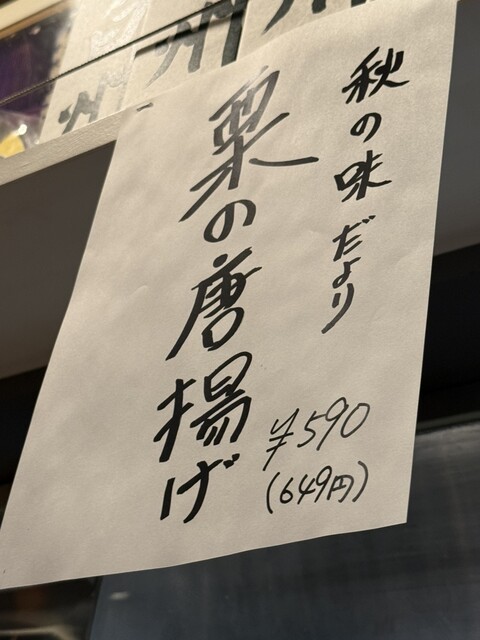 秋の味だより
栗の唐揚げ
¥590
(649円)